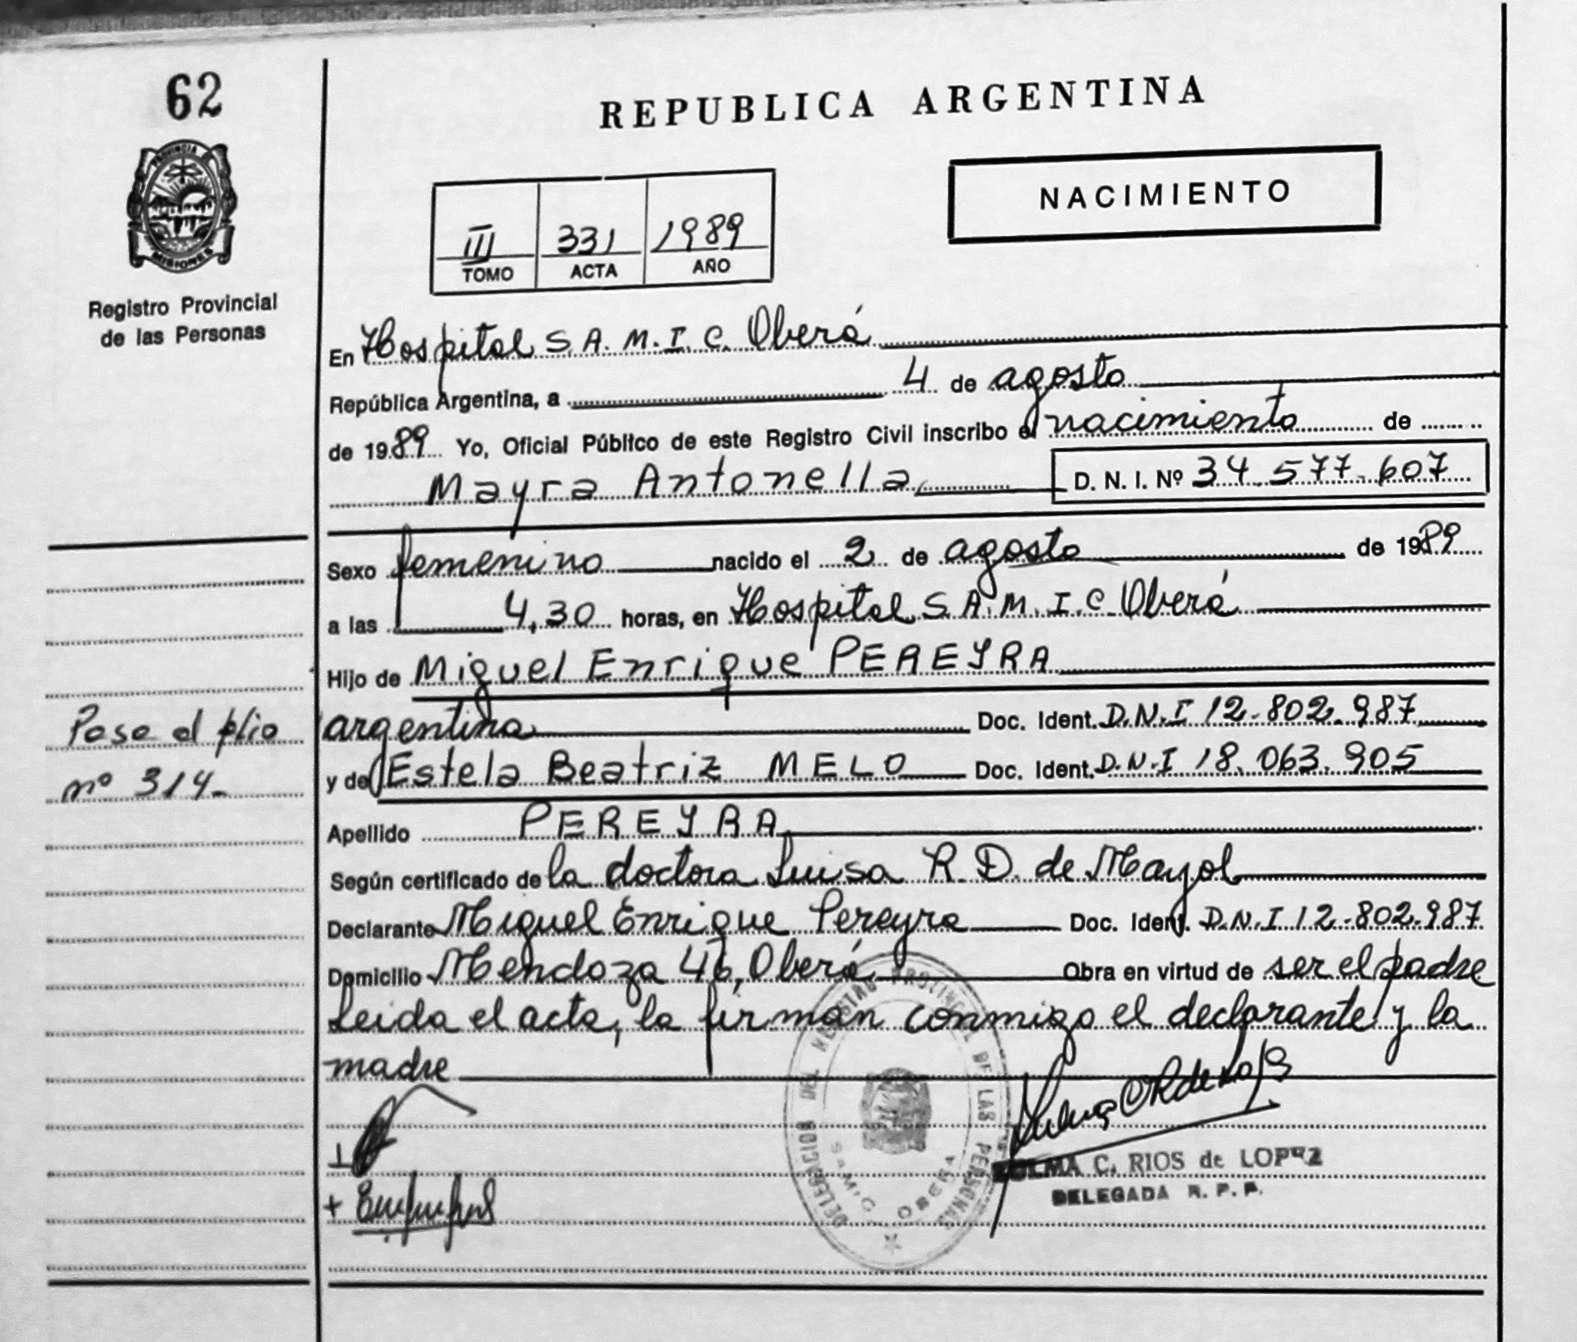 62
PROVINCIA D
MISIONES
Registro Provincial
de las Personas
REPUBLICA ARGENTINA
NACIMIENTO
III 331 1989
TOMO ACTA AÑO
En Hospital S.A.M.I.C. Oberá
República Argentina, a 4 de agosto
de 1989 Yo, Oficial Público de este Registro Civil inscribo el nacimiento de
Mayra Antonella D. N. I. Nº 34.577.607
Sexo femenino nacido el 2 de agosto de 1989
a las 4,30 horas, en Hospital S.A.M.I.C Oberá
Hijo de Miguel Enrique PEREYRA
argentina Doc. Ident. D.N.I 12.802.987
y de Estela Beatriz MELO Doc. Ident. D.N.I 18.063.905
Apellido PEREYRA
Según certificado de la doctora Luisa R. D. de Mayol
Declarante Miguel Enrique Pereyra Doc. Ident. D.N.I 12.802.987
Domicilio Mendoza 46, Oberá Obra en virtud de ser el padre
Leida el acta, la firman conmigo el declarante y la
madre
Pase al plio
nº 314.
DELEGACION DEL REGISTRO PROVINCIAL DE LAS PERSONAS
SAMIC OBERA
ZULMA C. RIOS de LOPEZ
DELEGADA R. P. P.